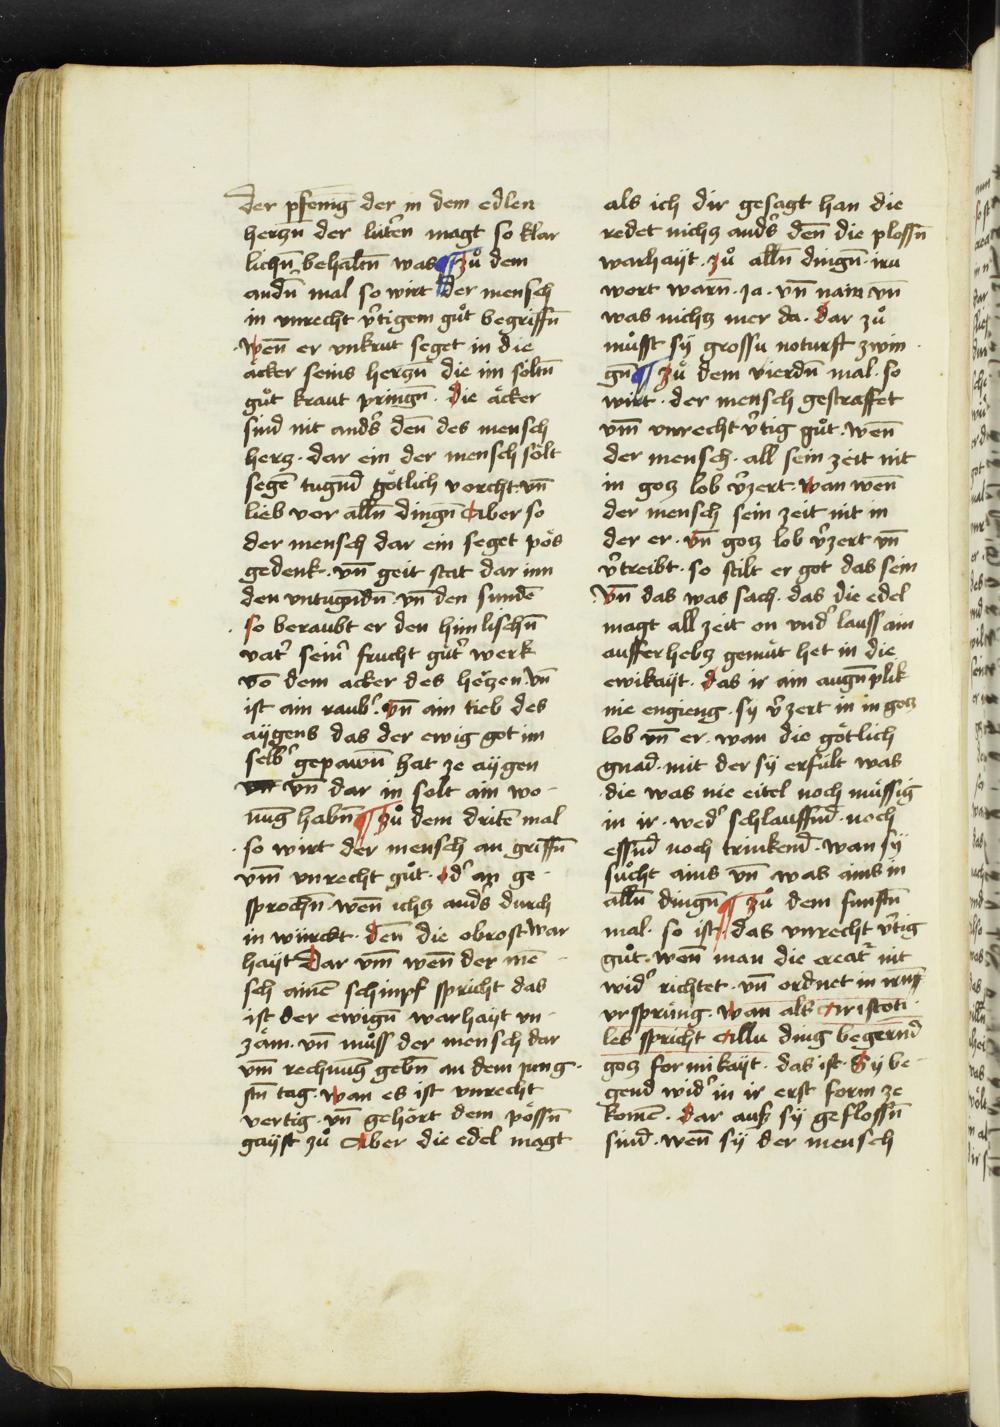 Der pfenīg der in dem edlen
herczn̄ der lutern magt so klar
lichn̄ behaltn̄ was ¶ Zů dem
andn̄ mal so wirt der mensch
in unrecht v̓tigem gůt begriffn̄
Wen̄ er vnkrut seget in die
äcker seins herczn̄ die im soltn̄
gůt kraut pringn̄. Die äcker
sind nit anders den̄ des mensch
hercz. dar ein der mensch solt
segē tugnd götlich vorcht. vn̄
lieb vor alln̄ dingn̄ Aber so
der mensch dar ein seget pös
gedenk. vn̄ geit stat dar inn
den vntugndn̄. vn̄ den sundē
so beraubt er den himlischn̄
vater seiner frucht guter werk
vō dem acker des herczen. vn̄
ist ain rauber. vn̄ ain tieb des
aÿgens das der ewig got im
selber gepawn̄ hat ze aÿgen
vn̄ dar in solt ain wo-
nung habn̄ ¶ Zů dem dritē mal
so wirt der mensch an griffn̄
vm̄ unrecht gůt. od̓ an ge-
sprochn̄. wen̄ ichcz anders durch
in würckt. den̄ die obrost war
haÿt Dar vm̄ wen̄ der mē-
sch ainē schimpf spricht das
ist der ewign̄ warhaÿt vn-
zäm. vn̄ můss der mensch dar
vm̄ rechnung gebn̄ an dem jung-
stn̄ tag. wan es ist vnrecht
vertig. vn̄ gehört dem pössn̄
gaÿst zů Aber die edel magt
als ich dir gesagt han die
redet nichcz anders den̄ die plossn̄
warhaÿt. Zů alln̄ dingn̄. iru
wort warn̄. ja. vn̄ nain vn̄
was nichcz mer da. Dar zů
můsst sÿ grossu noturft zwin
gn̄ ¶ Zů dem vierdn̄ mal. so
wirt. der mensch gestraffet
vm̄ vnrecht v̓tig gůt. wen̄
der mensch. all sein zeit nit
in gocz lob v̓zert. wan wen̄
der mensch sein zeit nit in
der er. vn̄ gocz lob v̓zert vn̄
v̓treibt. so stilt er got das sein
Vn̄ das was sach. das die edel
magt all zeit on under lauss ain
aufferhebcz gemüt het in die
ewikaÿt. das ir ain augn̄plik
nie engieng. sÿ v̓zert in in gocz
lob vn̄ er. wan die götlich
gnad. mit der sÿ erfült was
die was nie eitel noch müssig
in ir. weder schlauffnd. noch
essnd noch trinkend. wan sÿ
sůcht ains vn̄ was ains in
alln̄ dingn̄ ¶ Zů dem funftn̄
mal. so ist. das vnrecht v̓tig
gůt. wen̄ man die creatr nit
wider richtet. vn̄ ordnet in irn̄
vrsprüng. Wan als Aristoti
les spricht Allu ding begernd
gocz formikaÿt. das ist. Sÿ be-
gend wider in ir erst form ze
komē. Dar auß sÿ geflossn̄
sind. wen̄ sÿ der mensch